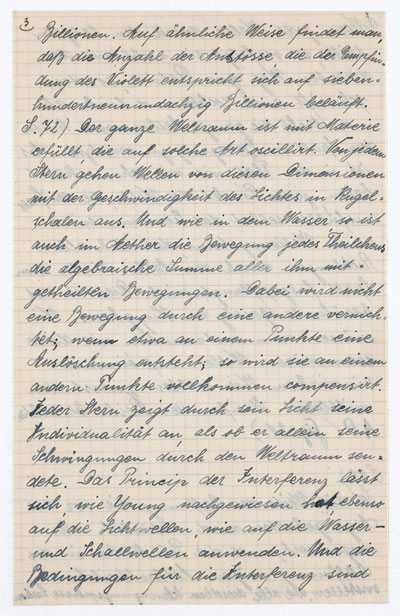 3
Billionen. Auf ähnliche Weise findet man,
daß die Anzahl der Anstösse, die der Empfin-
dung des Violett entspricht sich auf sieben-
hundertneunundachzig Billionen beläuft.
S. 72) Der ganze Weltraum ist mit Materie
erfüllt, die auf solche Art oscillirt. Von jedem
Stern gehen Wellen von diesen Dimensionen
mit der Geschwindigkeit des Lichtes in Kugel-
schalen aus. Und wie in dem Wasser, so ist
auch im Aether die Bewegung jedes Theilchens
die algebraische Summe aller ihm mit-
getheilten Bewegungen. Dabei wird nicht
eine Bewegung durch eine andere vernich-
tet; wenn etwa an einem Punkte eine
Auslöschung entsteht; so wird sie an einem
andern Punkte vollkommen compensirt.
Jeder Stern zeigt durch sein Licht seine
Individualität an, als ob er allein seine
Schwingungen durch den Weltraum sen-
dete. Das Princip der Interferenz lässt
sich, wie Young nachgewiesen hat ebenso
auf die Lichtwellen, wie auf die Wasser-
und Schallwellen anwenden. Und die
Bedingungen für die Interferenz sind